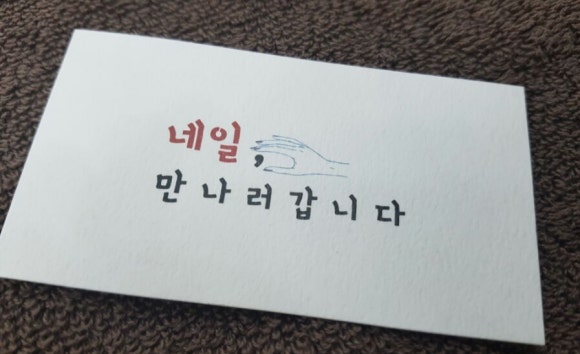 네일,
만나러갑니다